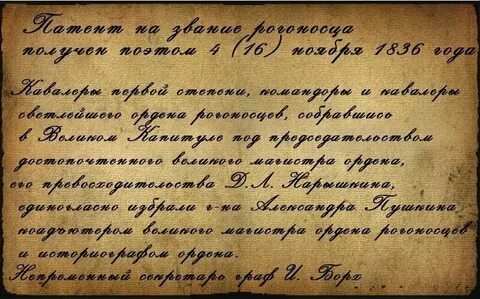 Патент на звание рогоносца
получен поэтом 4 (16) ноября 1836 года
Кавалеры первой степени, командоры и кавалеры
светлейшего ордена рогоносцев, собравшись
в Великом Капитуле под председательством
достопочтенного великого магистра ордена,
его превосходительства Д.Л. Нарышкина,
единогласно избрали г-на Александра Пушкина
коадъютером великого магистра ордена рогоносцев
и историографом ордена.
Непременный секретарь граф И. Борх